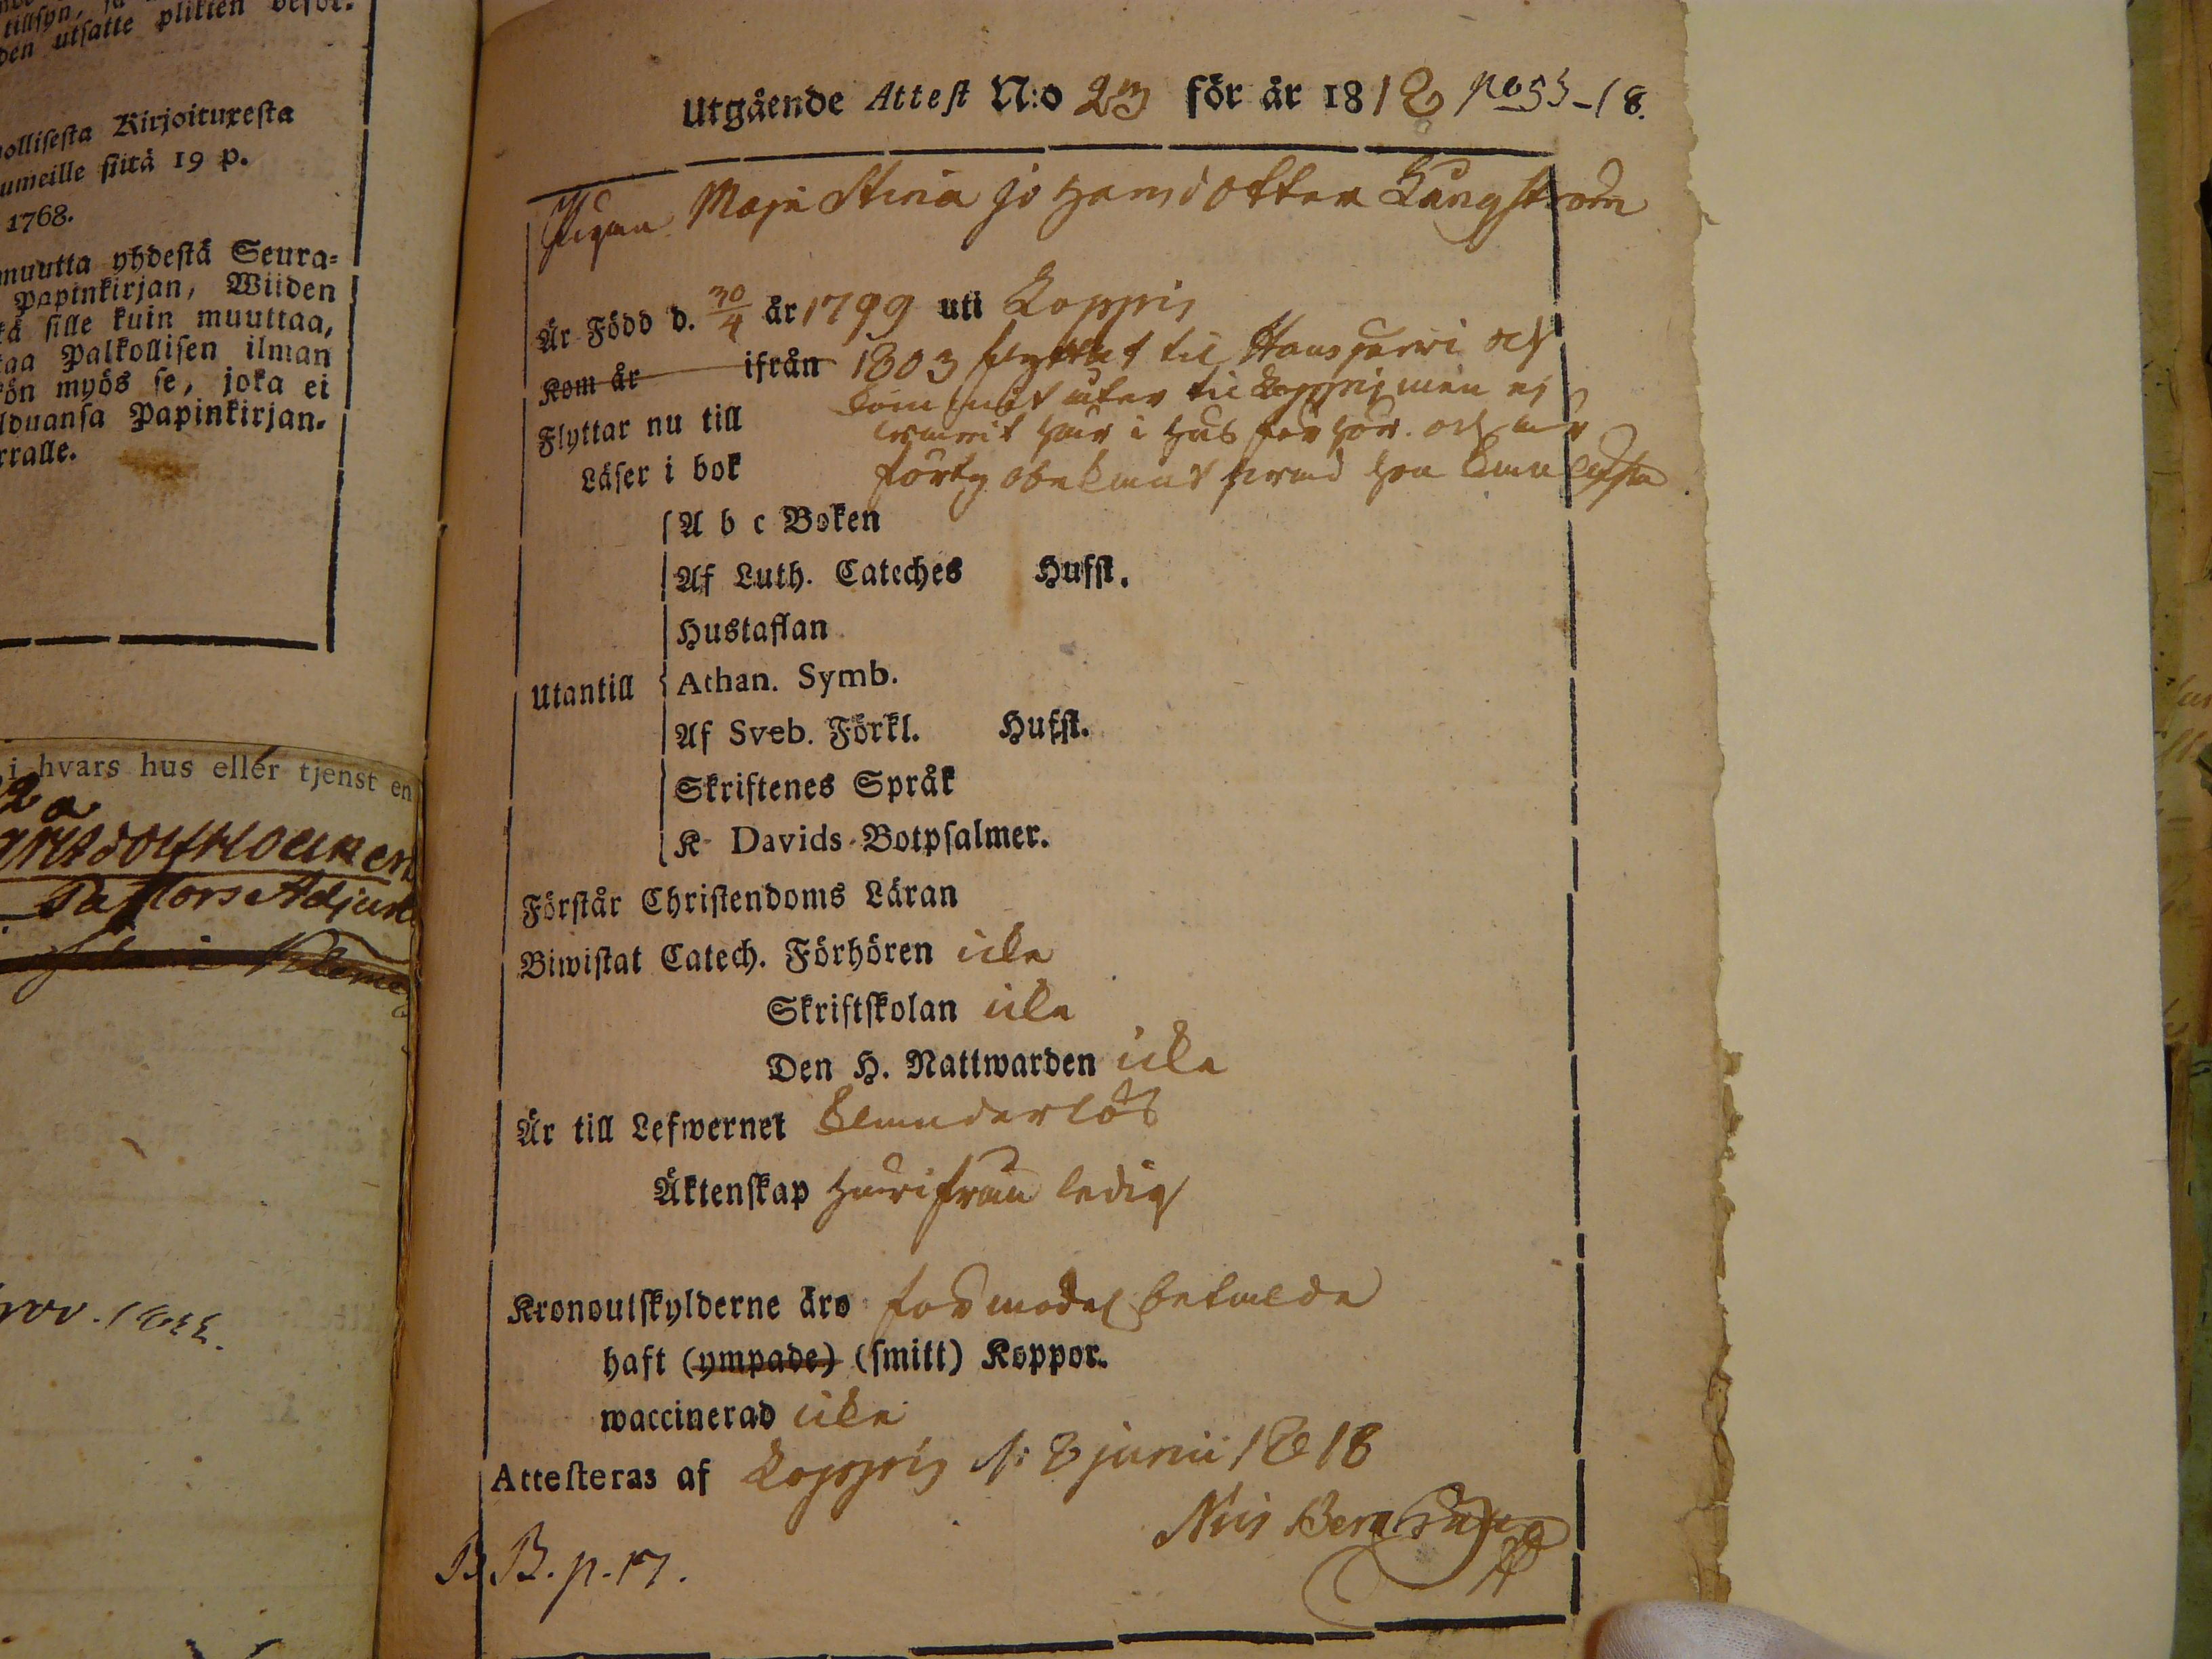 tillsyn, så
den utsatte plikten
ollisesta Kirjoituxesta
umeille siitä 19 p.
1768.
muutta yhdestä Seura-
Papinkirjan, Wiiden
kä sille kuin muuttaa,
taa Palkollisen ilman
kön myös se, joka ei
lduansa Papinkirjan-
rralle.
i hvars hus eller tjenst en
Pastors Adjunct
Utgående Attest N:o 23 för år 1818 pag 53-18.
Pigan Maja Stina Johansdotter Långström
Är Född d. 30/4 år 1799 uti Koppis
Kom år ifrån 1803 flyttat til Hausjärvi och
Flyttar nu till kommit åter til Koppis men ej
warit här i hus förhör. och är
Läser i bok förty obekant hwad hon kan läsa
A b c Boken
Af Luth. Cateches Hufst.
Hustaflan
Utantill Athan. Symb.
Af Sveb. Förkl. Hufst.
Skriftenes Språk
K Davids Botpsalmer.
Förstår Christendoms Läran
Biwistat Catech. Förhören icke
Skriftskolan icke
Den H. Nattwarden icke
Är till Lefwernet klanderlös
Äktenskap härifrån ledig
Kronoutskylderne äro förmodel. betalda
haft (ympade) (smitt) Koppor.
waccinerad icke
Attesteras af Koppis d: 8 junii 1818
Nils
B B. p. 17.